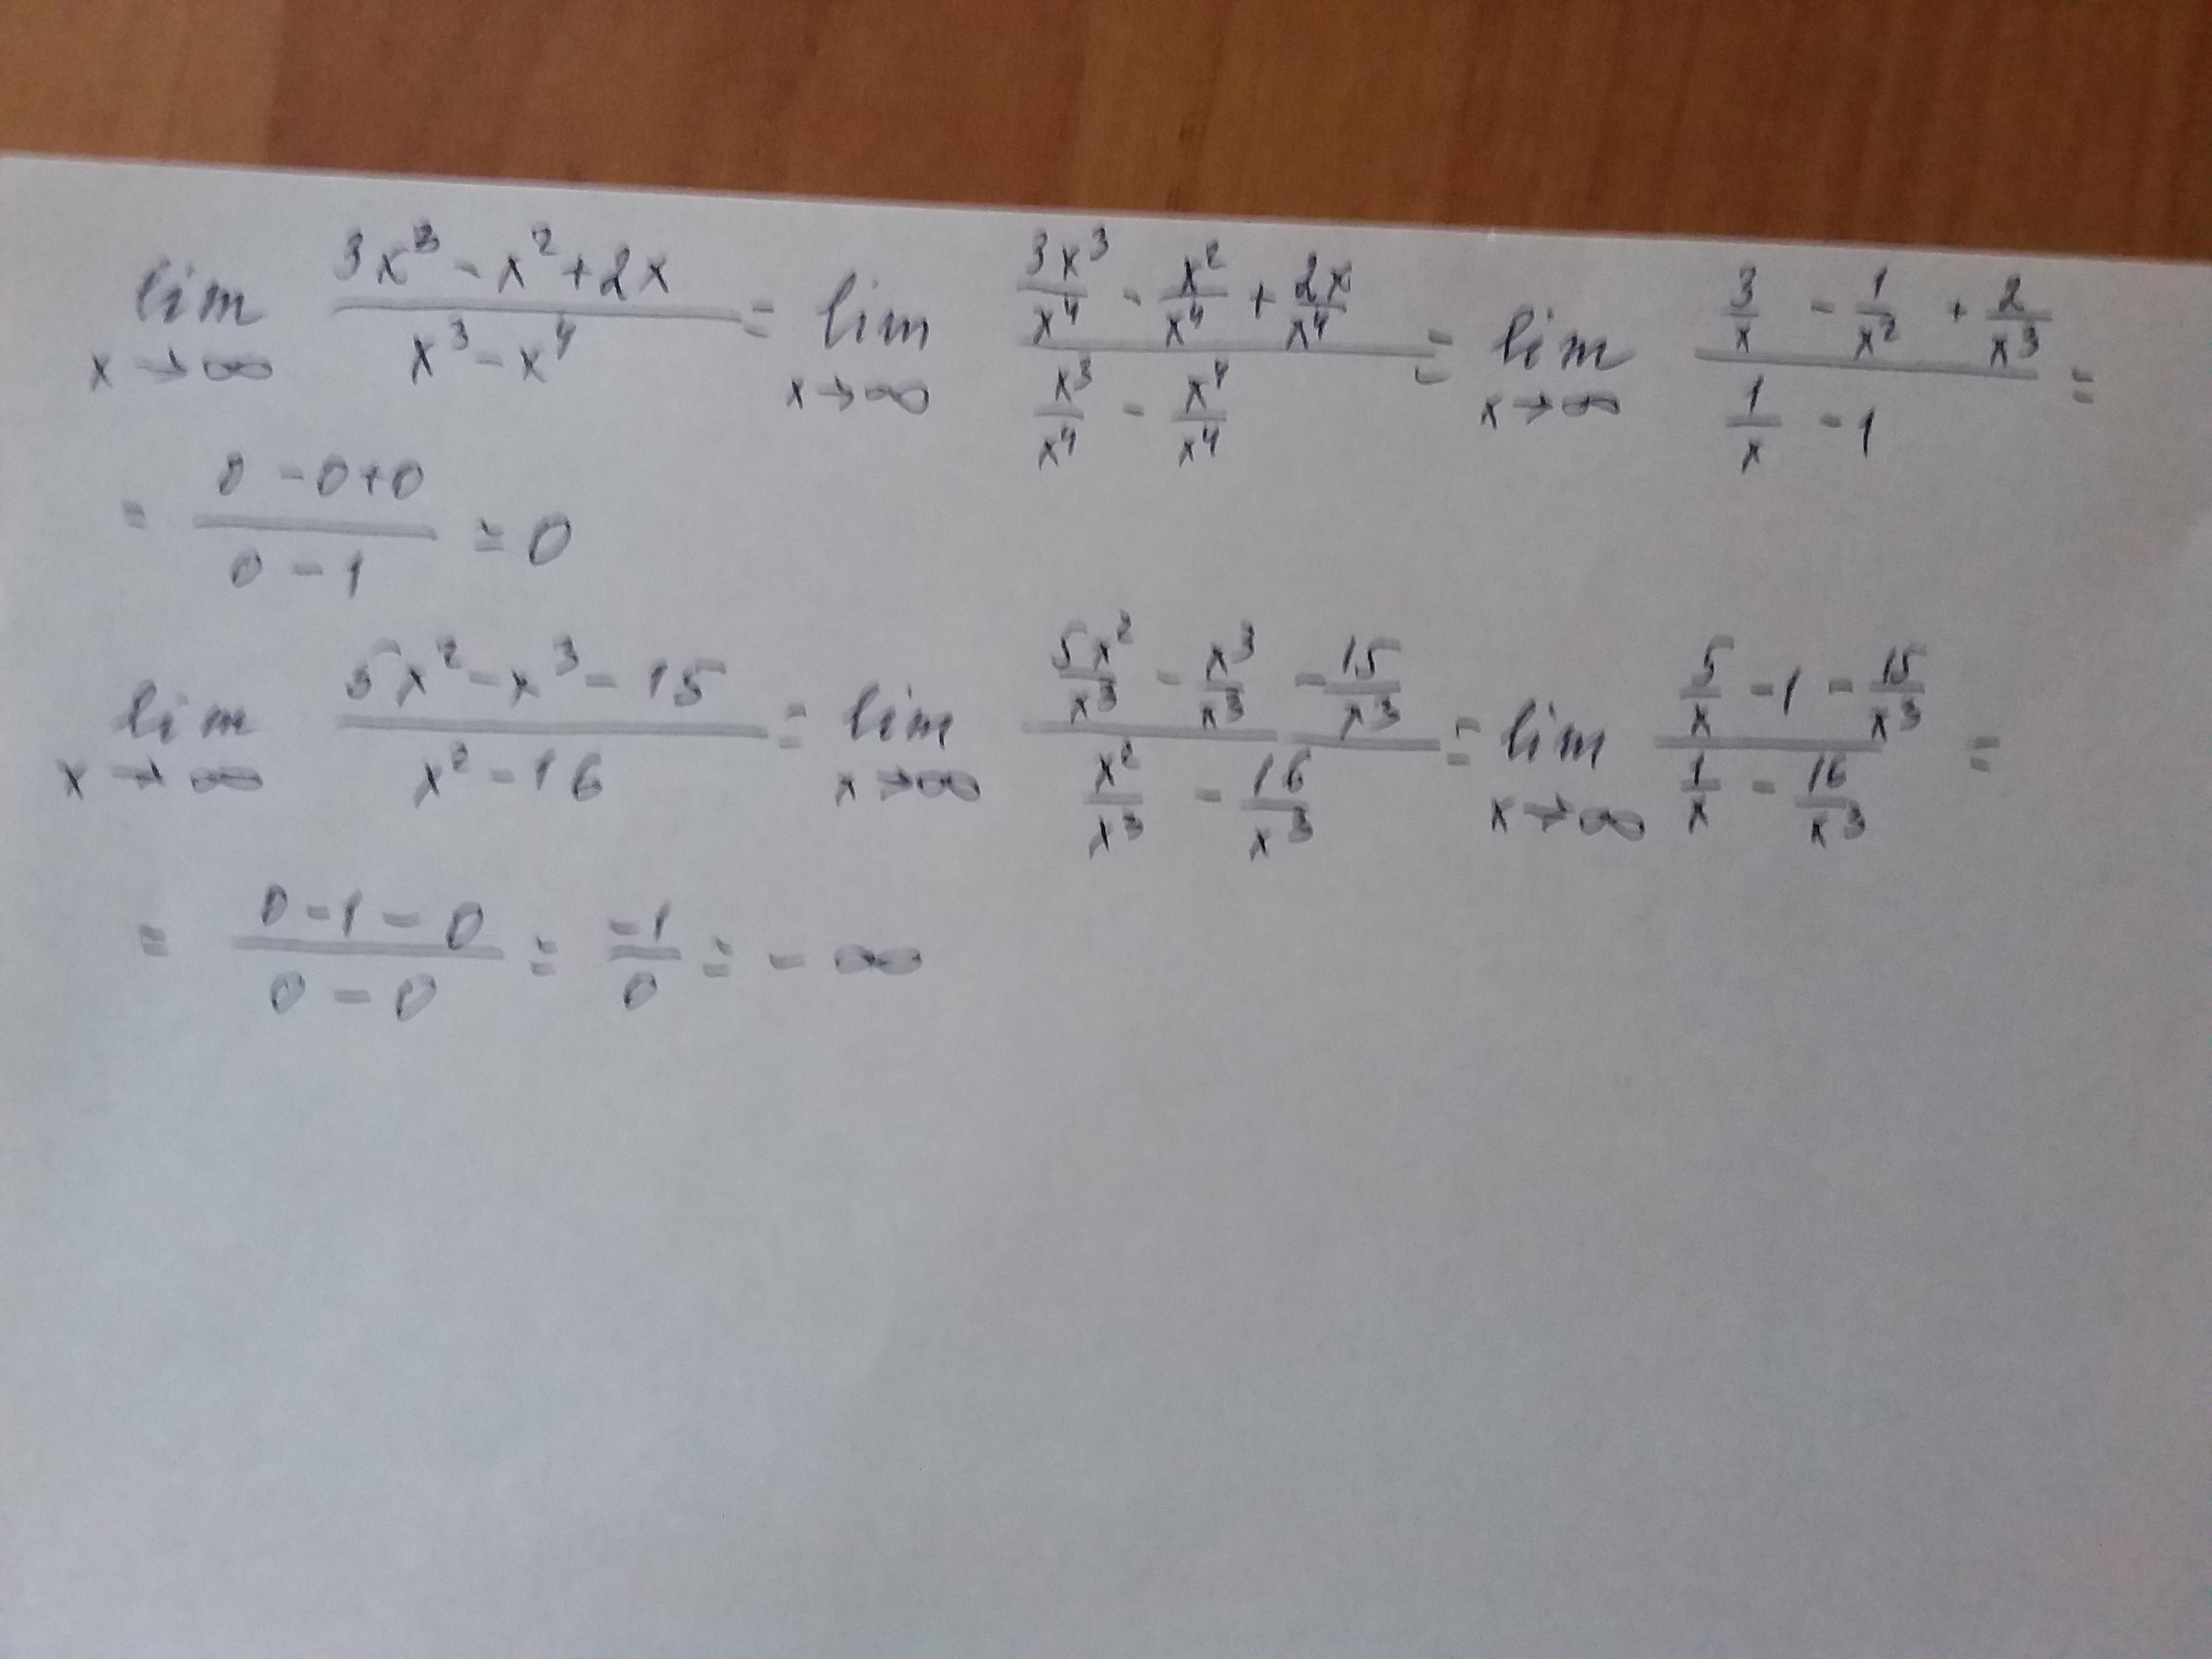 lim x→∞ (3x³ − x² + 2x)/(x³ − x⁴) = lim x→∞ (3x³/x⁴ − x²/x⁴ + 2x/x⁴)/(x³/x⁴ − x⁴/x⁴) = lim x→∞ (3/x − 1/x² + 2/x³)/(1/x − 1) =
= (0 − 0 + 0)/(0 − 1) = 0
lim x→∞ (5x² − x³ − 15)/(x² − 16) = lim x→∞ (5x²/x³ − x³/x³ − 15/x³)/(x²/x³ − 16/x³) = lim x→∞ (5/x − 1 − 15/x³)/(1/x − 16/x³) =
= (0 − 1 − 0)/(0 − 0) = −1/0 = −∞